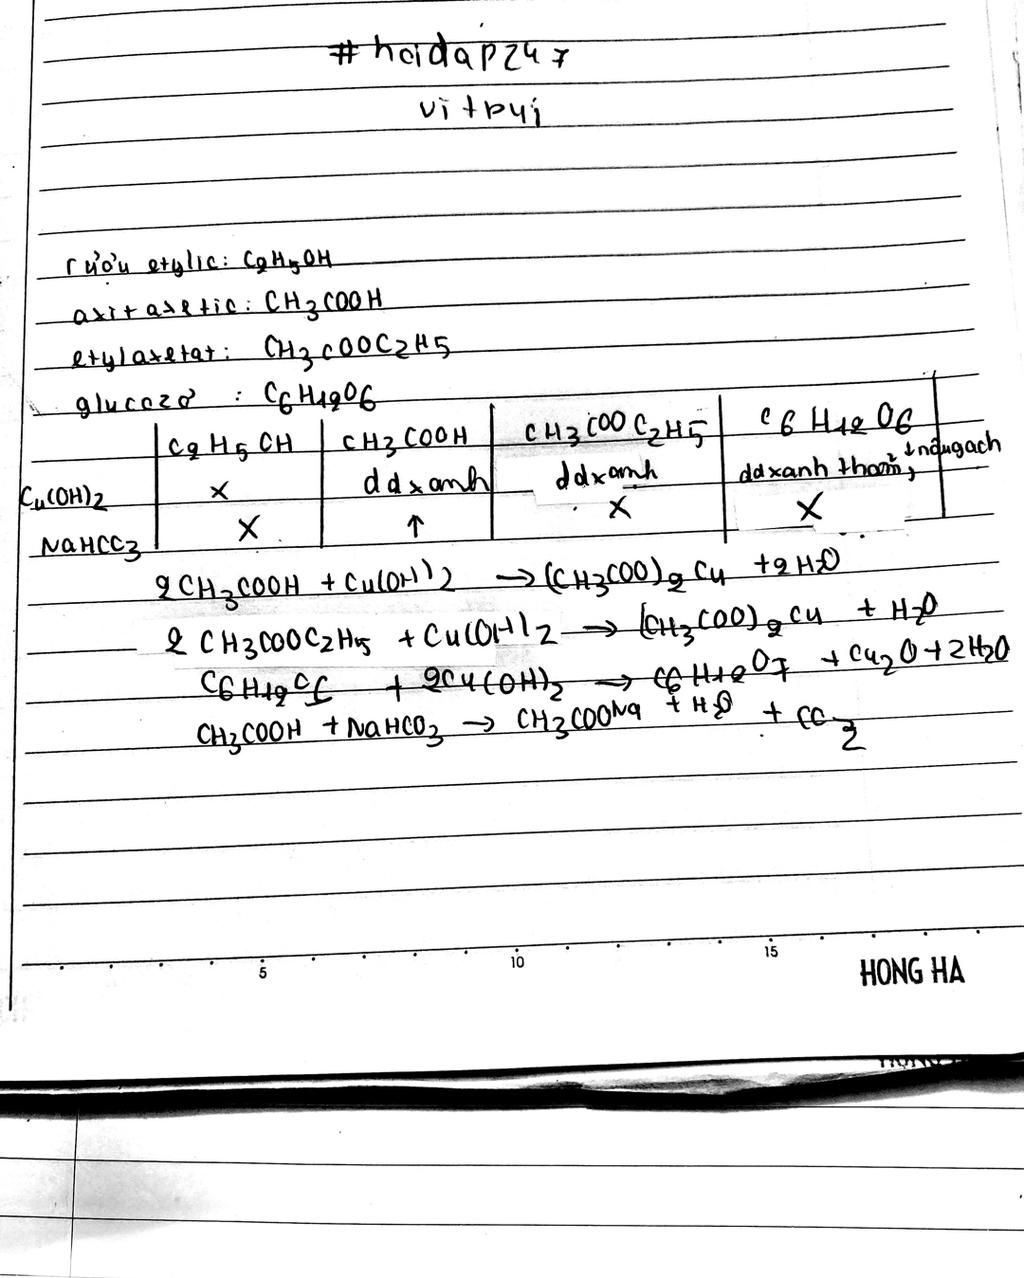 #hoidap247
vitpyj
rượu etylic: C2H5OH
axit axetic: CH3COOH
etylaxetat: CH3COOC2H5
glucozơ : C6H12O6
C2H5OH CH3COOH CH3COOC2H5 C6H12O6
Cu(OH)2 x ddxanh ddxanh ddxanh thẫm, ↓nâugạch
NaHCO3 X ↑ X X
2CH3COOH + Cu(OH)2 → (CH3COO)2Cu + 2H2O
2 CH3COOC2H5 + Cu(OH)2 → (CH3COO)2Cu + H2O
C6H12O6 + 2Cu(OH)2 → C6H12O7 + Cu2O + 2H2O
CH3COOH + NaHCO3 → CH3COONa + H2O + CO2
5 10 15
HONG HA